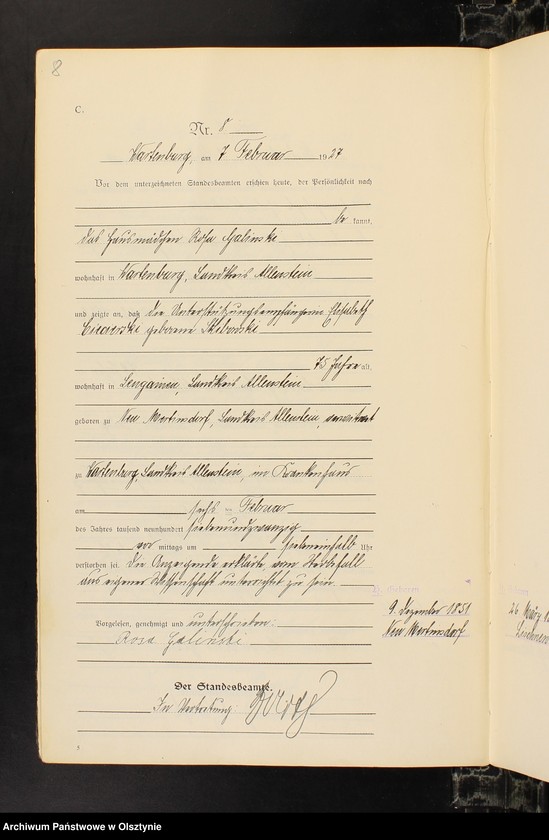 8
C.
Nr. 8
Wartenburg, am 7 Februar 1927
Vor dem unterzeichneten Standesbeamten erschien heute, der Persönlichkeit nach
be kannt,
das Hausmädchen Rosa Galinski
wohnhaft in Wartenburg, Landkreis Allenstein
und zeigte an, daß die Unterstützungsempfängerin Elisabeth
geborene Sklebowski
75 Jahre alt,
wohnhaft in Lengainen, Landkreis Allenstein
geboren zu Neu Mertinsdorf, Landkreis Allenstein, verwitwet
zu Wartenburg, Landkreis Allenstein, im Krankenhaus
am sechs ten Februar
des Jahres tausend neunhundert siebenundzwanzig
vor mittags um siebeneinhalb Uhr
verstorben sei. Die Anzeigende erklärte, vom Sterbefall
aus eigener Wissenschaft unterrichtet zu sein.
9. Dezember 1851
Neu Mertinsdorf
Vorgelesen, genehmigt und unterschrieben:
Rosa Galinski
Der Standesbeamte.
In Vertretung:
26. März
Archiwum Państwowe w Olsztynie